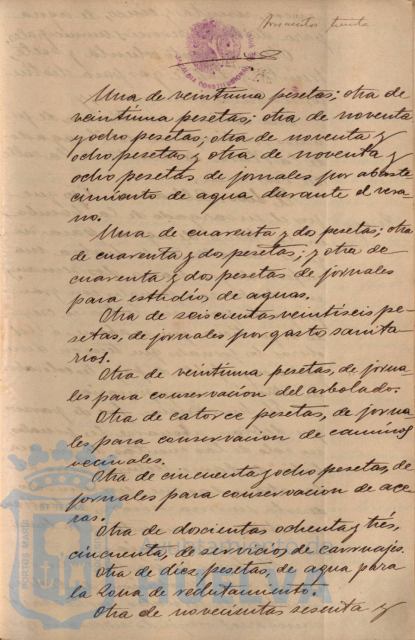 Trescientos treinta
ALCALDIA CONSTITUCIONAL
Una de veintiuna pesetas; otra de
veintiuna pesetas; otra de noventa
y ocho pesetas; otra de noventa y
ocho pesetas y otra de noventa y
ocho pesetas de jornales por abaste
cimiento de agua durante el vera-
no.
Una de cuarenta y dos pesetas; otra
de cuarenta y dos pesetas; y otra de
cuarenta y dos pesetas de jornales
para estudios de aguas.
Otra de seiscientas veintiseis pe-
setas, de jornales por gastos sanita
rios.
Otra de veintiuna pesetas, de jorna-
les para conservación del arbolado.
Otra de catorce pesetas, de jorna
les para conservacion de caminos
vecinales.
Otra de cincuenta y ocho pesetas, de
jornales para conservacion de ace-
ras.
Otra de doscientas ochenta y tres,
cincuenta, de servicios de carruajes.
Otra de diez pesetas, de agua para
la Zona de reclutamiento.
Otra de novecientas sesenta y
PORTUS MARIS
Ayuntamiento de
HUELVA